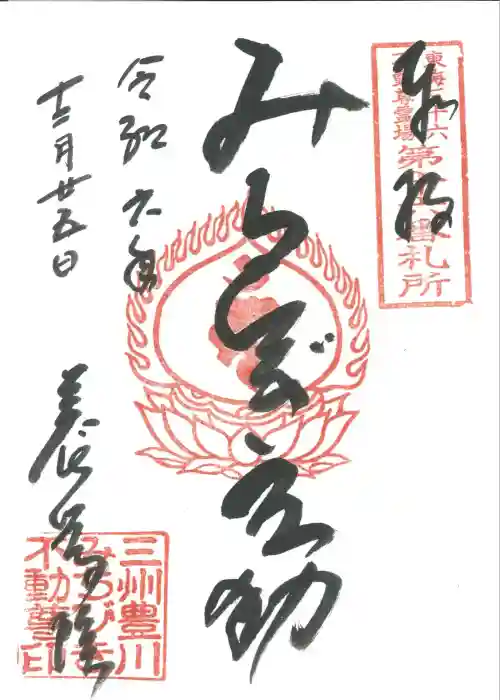 奉拝
東海三十六
不動尊霊場
第
番札所
みちびき不動
令和六年
十二月廿五日
養学院
三州豊川
みちびき
不動尊印